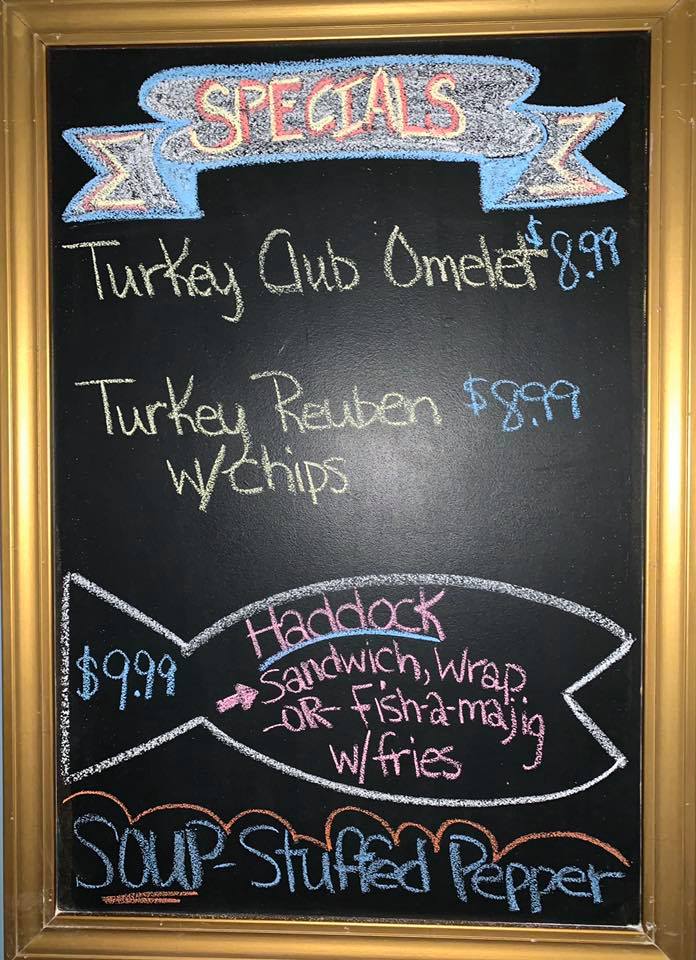 SPECIALS
Turkey Club Omelet $8.99
Turkey Reuben $8.99
w/chips
Haddock
$9.99
Sandwich, Wrap
-OR- Fish-a-majig
w/fries
SOUP-Stuffed Pepper